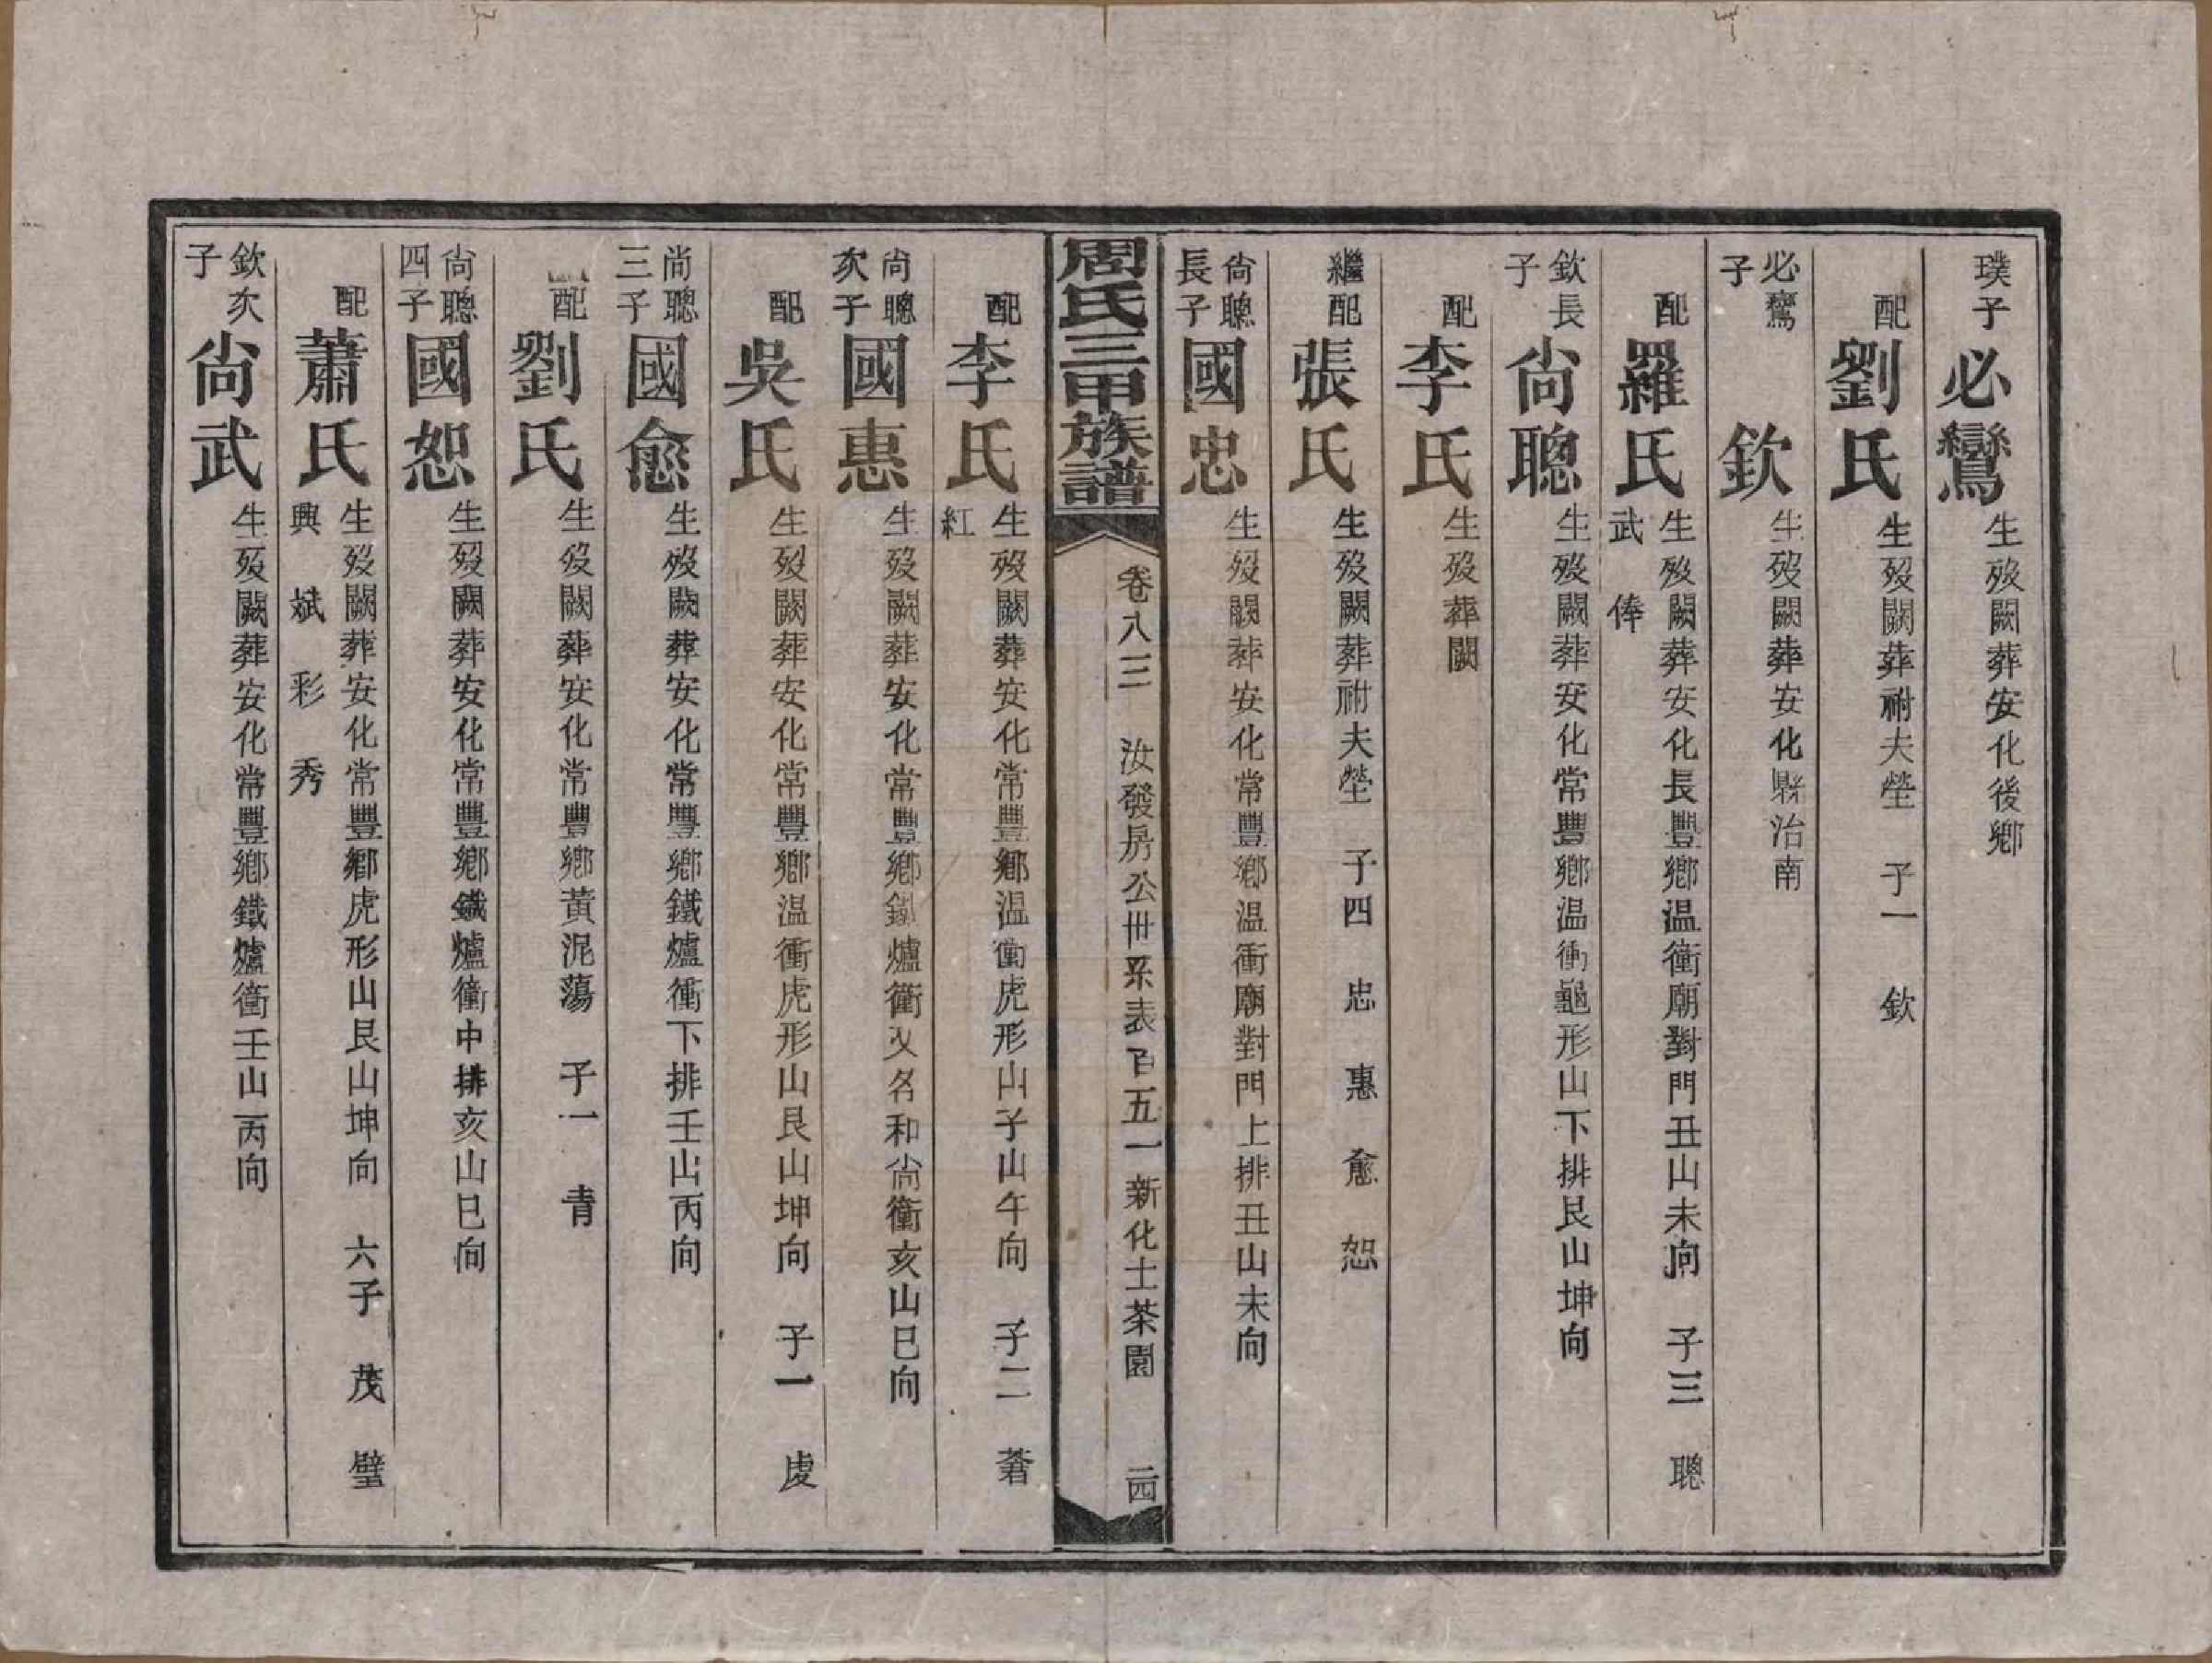 璞子 必鸞 生歿闕葬安化後鄉
配 劉氏 生歿闕葬祔夫塋 子一 欽
必鸞子 欽 生歿闕葬安化縣治南
配 羅氏 生歿闕葬安化長豐鄉温衝廟對門丑山未向 子三 聰
武 俸
欽長子 尚聰 生歿闕葬安化常豐鄉温衝龜形山下排艮山坤向
配 李氏 生歿葬闕
繼配 張氏 生歿闕葬祔夫塋 子四 忠 惠 愈 恕
尚聰長子 國忠 生歿闕葬安化常豐鄉温衝廟對門上排丑山未向
周氏三甲族譜 卷八三 汝發房公卅系表百五一新化土茶園 二四
配 李氏 生歿闕葬安化常豐鄉温衝虎形山子山午向 子二 著
紅
尚聰次子 國惠 生歿闕葬安化常豐鄉鐵爐衝又名和尚衝亥山巳向
配 吳氏 生歿闕葬安化常豐鄉温衝虎形山艮山坤向 子一 虔
尚聰三子 國愈 生歿闕葬安化常豐鄉鐵爐衝下排壬山丙向
配 劉氏 生歿闕葬安化常豐鄉黃泥蕩 子一 青
尚聰四子 國恕 生歿闕葬安化常豐鄉鐵爐衝中排亥山巳向
配 蕭氏 生歿闕葬安化常豐鄉虎形山艮山坤向 六子 茂 璧
興 斌 彩 秀
欽次子 尚武 生歿闕葬安化常豐鄉鐵爐衝壬山丙向